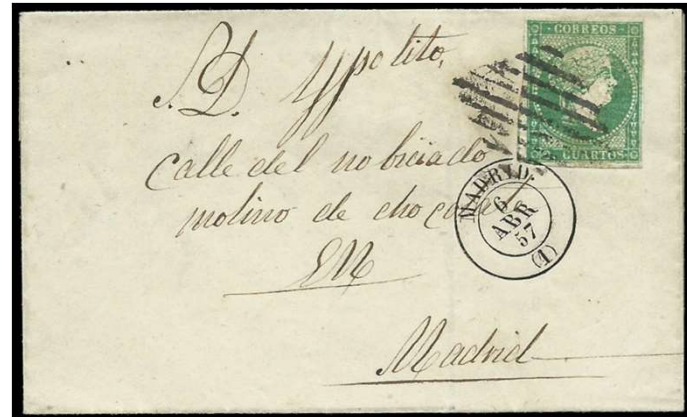 CORREOS
CUARTOS
S. D. Yppolito,
calle del nobiciado
molino de chocolate
EM
Madrid
MADRID
6
ABR
57
(1)